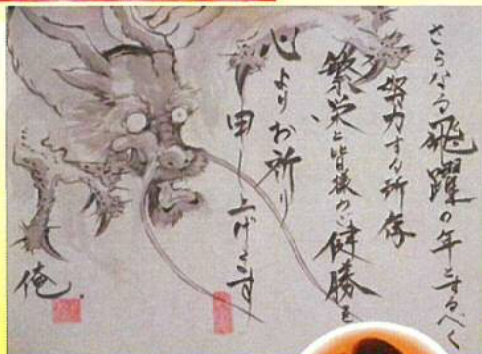 さらなる飛躍の年とするべく
努力する所存
繁栄と皆様のご健勝を
心よりお祈り
申し上げます
俺